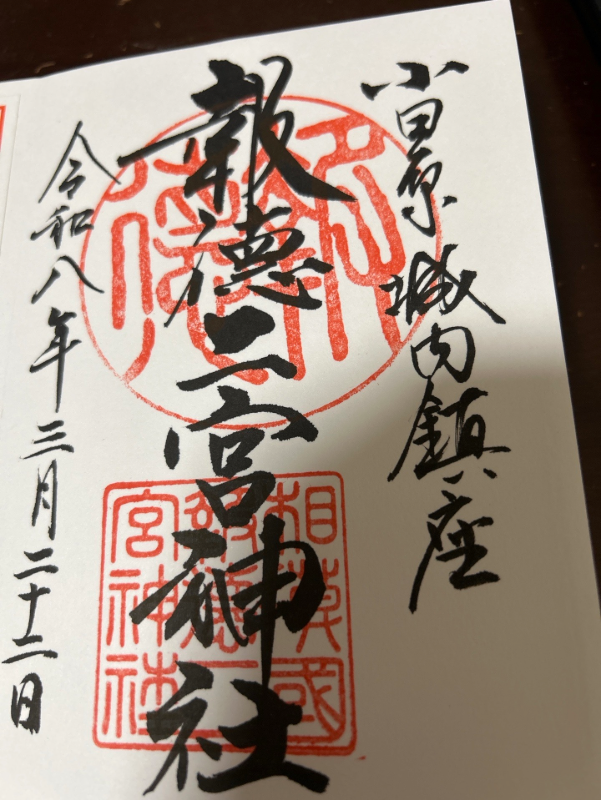 小田原城内鎮座
報徳二宮神社
令和八年三月二十二日
相模國
報徳二
宮神社